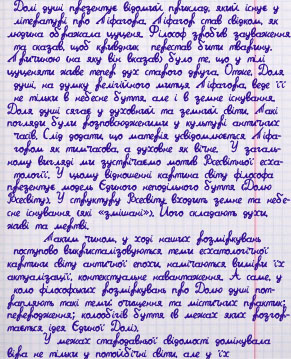 Долі душі презентує відомий приклад, який існує у
літературі про Піфагора. Піфагор став свідком, як
людина ображала цуценя. Філософ зробив зауваження
та сказав, щоб кривдник перестав бити тварину.
Причиною (на яку він вказав) було те, що у тілі
цуценяти живе тепер дух старого друга. Отже, Доля
душі, на думку релігійного митця Піфагора, веде її
не тільки в небесне буття, але і в земне існування.
Доля душі сягає у духовний та земний світи. Такі
погляди були розповсюдженими у культурі античних
часів. Слід додати, що матерія усвідомлюється Піфа-
гором як тимчасова, а духовне як вічне. У загаль-
ному вигляді ми зустрічаємо мотив Всесвітньої есха-
тології. У цьому відношенні картина світу філософа
презентує модель Єдиного неподільного буття (Долю
Всесвіту). У структуру Всесвіту входить земне та небе-
сне існування (які «змішані»). Його складають духи,
живі та мертві.
Таким чином, у ході наших розміркувань
поступово викристалізовуються теми есхатологічної
картини світу античної епохи, намічаються виміри їх
актуалізації, контекстуальне навантаження. А саме, у
коло філософських розміркувань про Долю душі пот-
рапляють такі теми: очищення та містичних практик;
переродження; колообігів буття (в межах яких розгор-
тається ідея Єдиної Долі).
У межах стародавньої свідомості домінувала
віра не тільки у потойбічні світи, але у їх